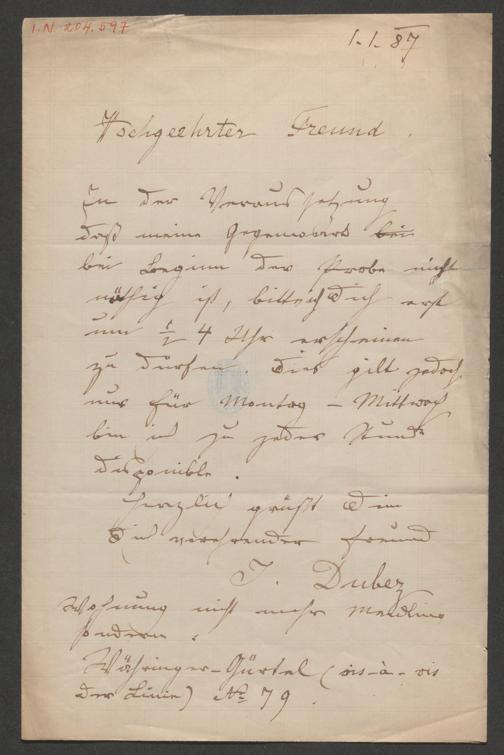 I.N. 204.597
1.1.87
Hochgeehrter Freund.
In der Voraussetzung
daß meine Gegenwart bei
bei Beginn der Probe nicht
nöthig ist, bitte ich Dich erst
um ½ 4 Uhr erscheinen
zu dürfen. Dies gilt jedoch
nur für Montag – Mittwoch
bin ich zu jeder Stunde
disponible.
Herzlich grüßt Dein
Dich verehrender Freund
J. Dubez
Wohnung nicht mehr Meidling
sondern:
Währinger-Gürtel (vis-à-vis
der Linie) No 79